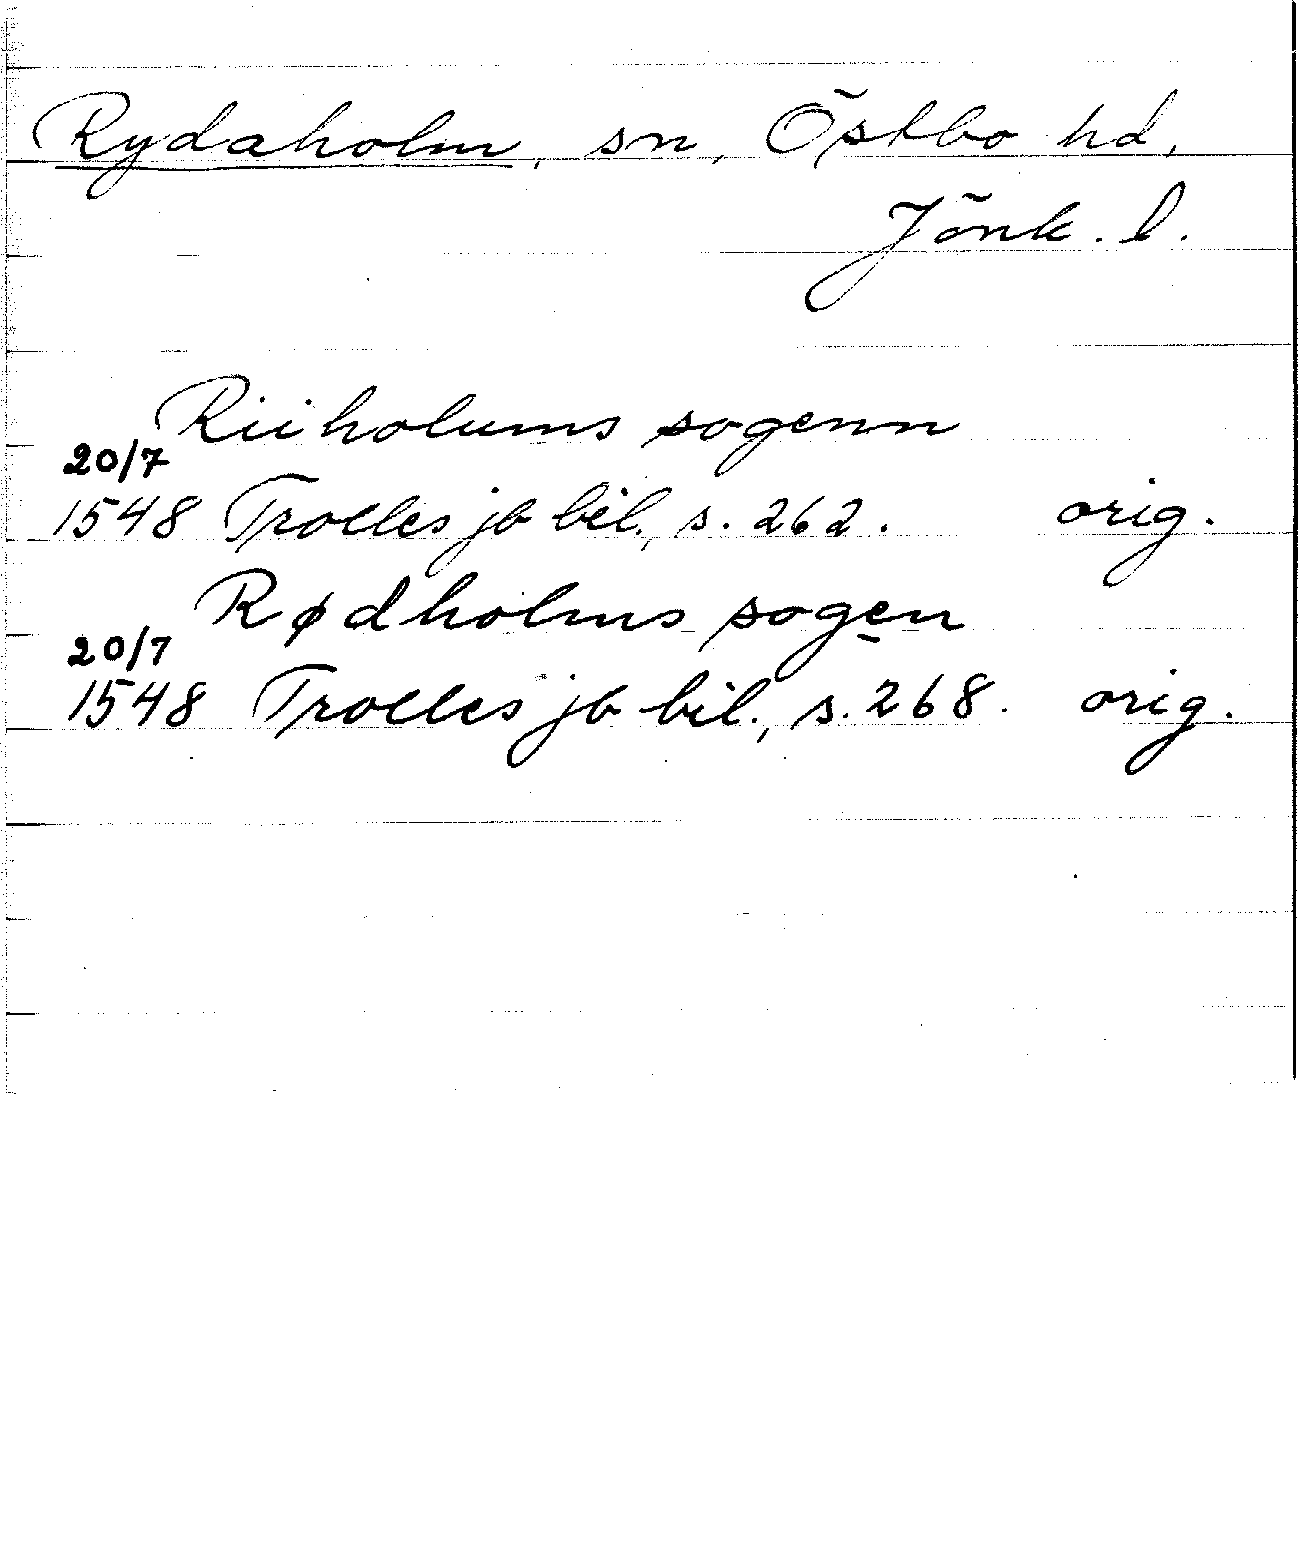 Rydaholm, sn, Östbo hd,
Jönk. l.
Riiholums sogenn
20/7
1548 Trolles jb bil., s. 262. orig.
Rødholms sogen
20/7
1548 Trolles jb bil., s. 268. orig.